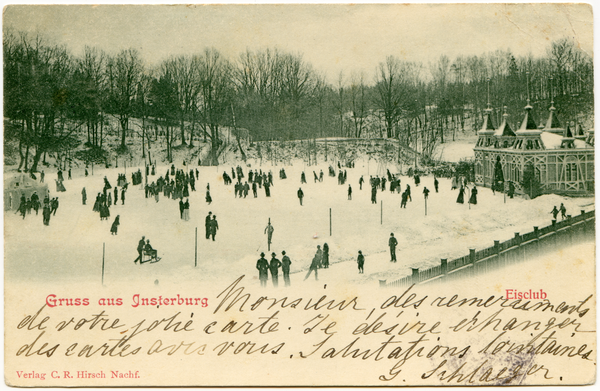 Gruss aus Insterburg
Eisclub
Monsieur, des remerciments
de votre jolie carte. Je désire échanger
des cartes avec vous. Salutations lointaines
G. Schlaefer.
Verlag C. R. Hirsch Nachf.